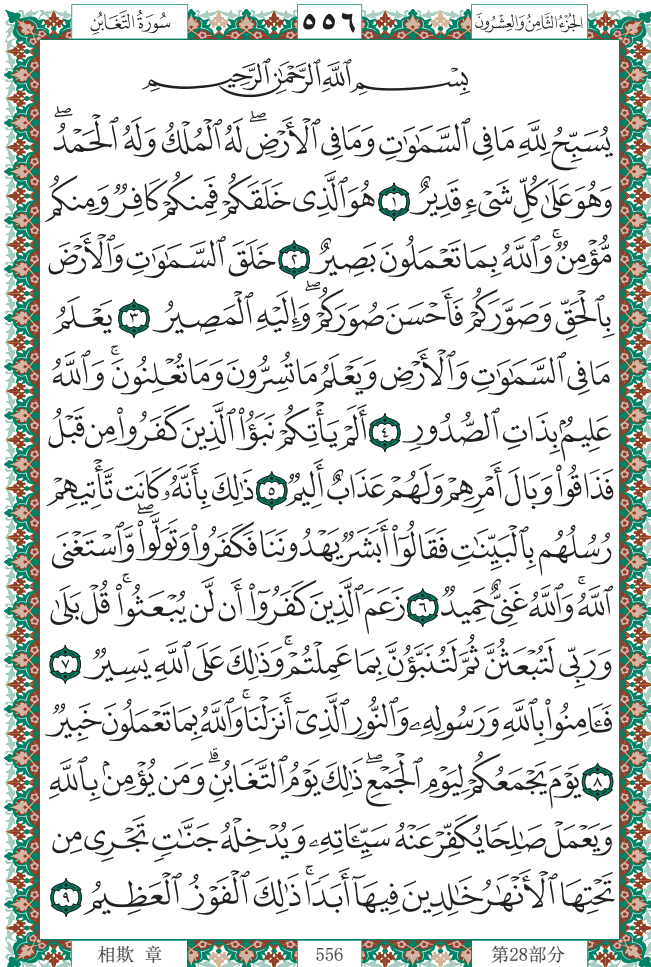 سُورَةُ التَّغَابُنِ ٥٥٦ الجُزْءُ الثَّامِنُ وَالعِشْرُونَ
بِسْمِ ٱللَّهِ ٱلرَّحْمَٰنِ ٱلرَّحِيمِ
يُسَبِّحُ لِلَّهِ مَا فِى ٱلسَّمَٰوَٰتِ وَمَا فِى ٱلْأَرْضِ ۖ لَهُ ٱلْمُلْكُ وَلَهُ ٱلْحَمْدُ ۖ
وَهُوَ عَلَىٰ كُلِّ شَىْءٍ قَدِيرٌ ١ هُوَ ٱلَّذِى خَلَقَكُمْ فَمِنكُمْ كَافِرٌ وَمِنكُم
مُّؤْمِنٌ ۚ وَٱللَّهُ بِمَا تَعْمَلُونَ بَصِيرٌ ٢ خَلَقَ ٱلسَّمَٰوَٰتِ وَٱلْأَرْضَ
بِٱلْحَقِّ وَصَوَّرَكُمْ فَأَحْسَنَ صُوَرَكُمْ ۖ وَإِلَيْهِ ٱلْمَصِيرُ ٣ يَعْلَمُ
مَا فِى ٱلسَّمَٰوَٰتِ وَٱلْأَرْضِ وَيَعْلَمُ مَا تُسِرُّونَ وَمَا تُعْلِنُونَ ۚ وَٱللَّهُ
عَلِيمٌۢ بِذَاتِ ٱلصُّدُورِ ٤ أَلَمْ يَأْتِكُمْ نَبَؤُا۟ ٱلَّذِينَ كَفَرُوا۟ مِن قَبْلُ
فَذَاقُوا۟ وَبَالَ أَمْرِهِمْ وَلَهُمْ عَذَابٌ أَلِيمٌ ٥ ذَٰلِكَ بِأَنَّهُۥ كَانَت تَّأْتِيهِمْ
رُسُلُهُم بِٱلْبَيِّنَٰتِ فَقَالُوٓا۟ أَبَشَرٌ يَهْدُونَنَا فَكَفَرُوا۟ وَتَوَلَّوا۟ ۖ وَّٱسْتَغْنَى
ٱللَّهُ ۚ وَٱللَّهُ غَنِىٌّ حَمِيدٌ ٦ زَعَمَ ٱلَّذِينَ كَفَرُوٓا۟ أَن لَّن يُبْعَثُوا۟ ۚ قُلْ بَلَىٰ
وَرَبِّى لَتُبْعَثُنَّ ثُمَّ لَتُنَبَّؤُنَّ بِمَا عَمِلْتُمْ ۚ وَذَٰلِكَ عَلَى ٱللَّهِ يَسِيرٌ ٧
فَـَٔامِنُوا۟ بِٱللَّهِ وَرَسُولِهِۦ وَٱلنُّورِ ٱلَّذِىٓ أَنزَلْنَا ۚ وَٱللَّهُ بِمَا تَعْمَلُونَ خَبِيرٌ
٨ يَوْمَ يَجْمَعُكُمْ لِيَوْمِ ٱلْجَمْعِ ۖ ذَٰلِكَ يَوْمُ ٱلتَّغَابُنِ ۗ وَمَن يُؤْمِنۢ بِٱللَّهِ
وَيَعْمَلْ صَٰلِحًا يُكَفِّرْ عَنْهُ سَيِّـَٔاتِهِۦ وَيُدْخِلْهُ جَنَّٰتٍ تَجْرِى مِن
تَحْتِهَا ٱلْأَنْهَٰرُ خَٰلِدِينَ فِيهَآ أَبَدًا ۚ ذَٰلِكَ ٱلْفَوْزُ ٱلْعَظِيمُ ٩
相欺 章 556 第28部分